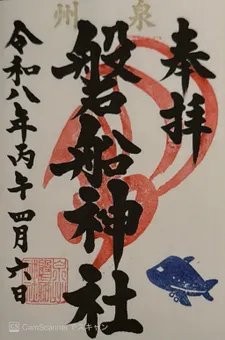 泉州
奉拝
磐船神社
令和八年丙午四月六日
CamScanner でスキャン